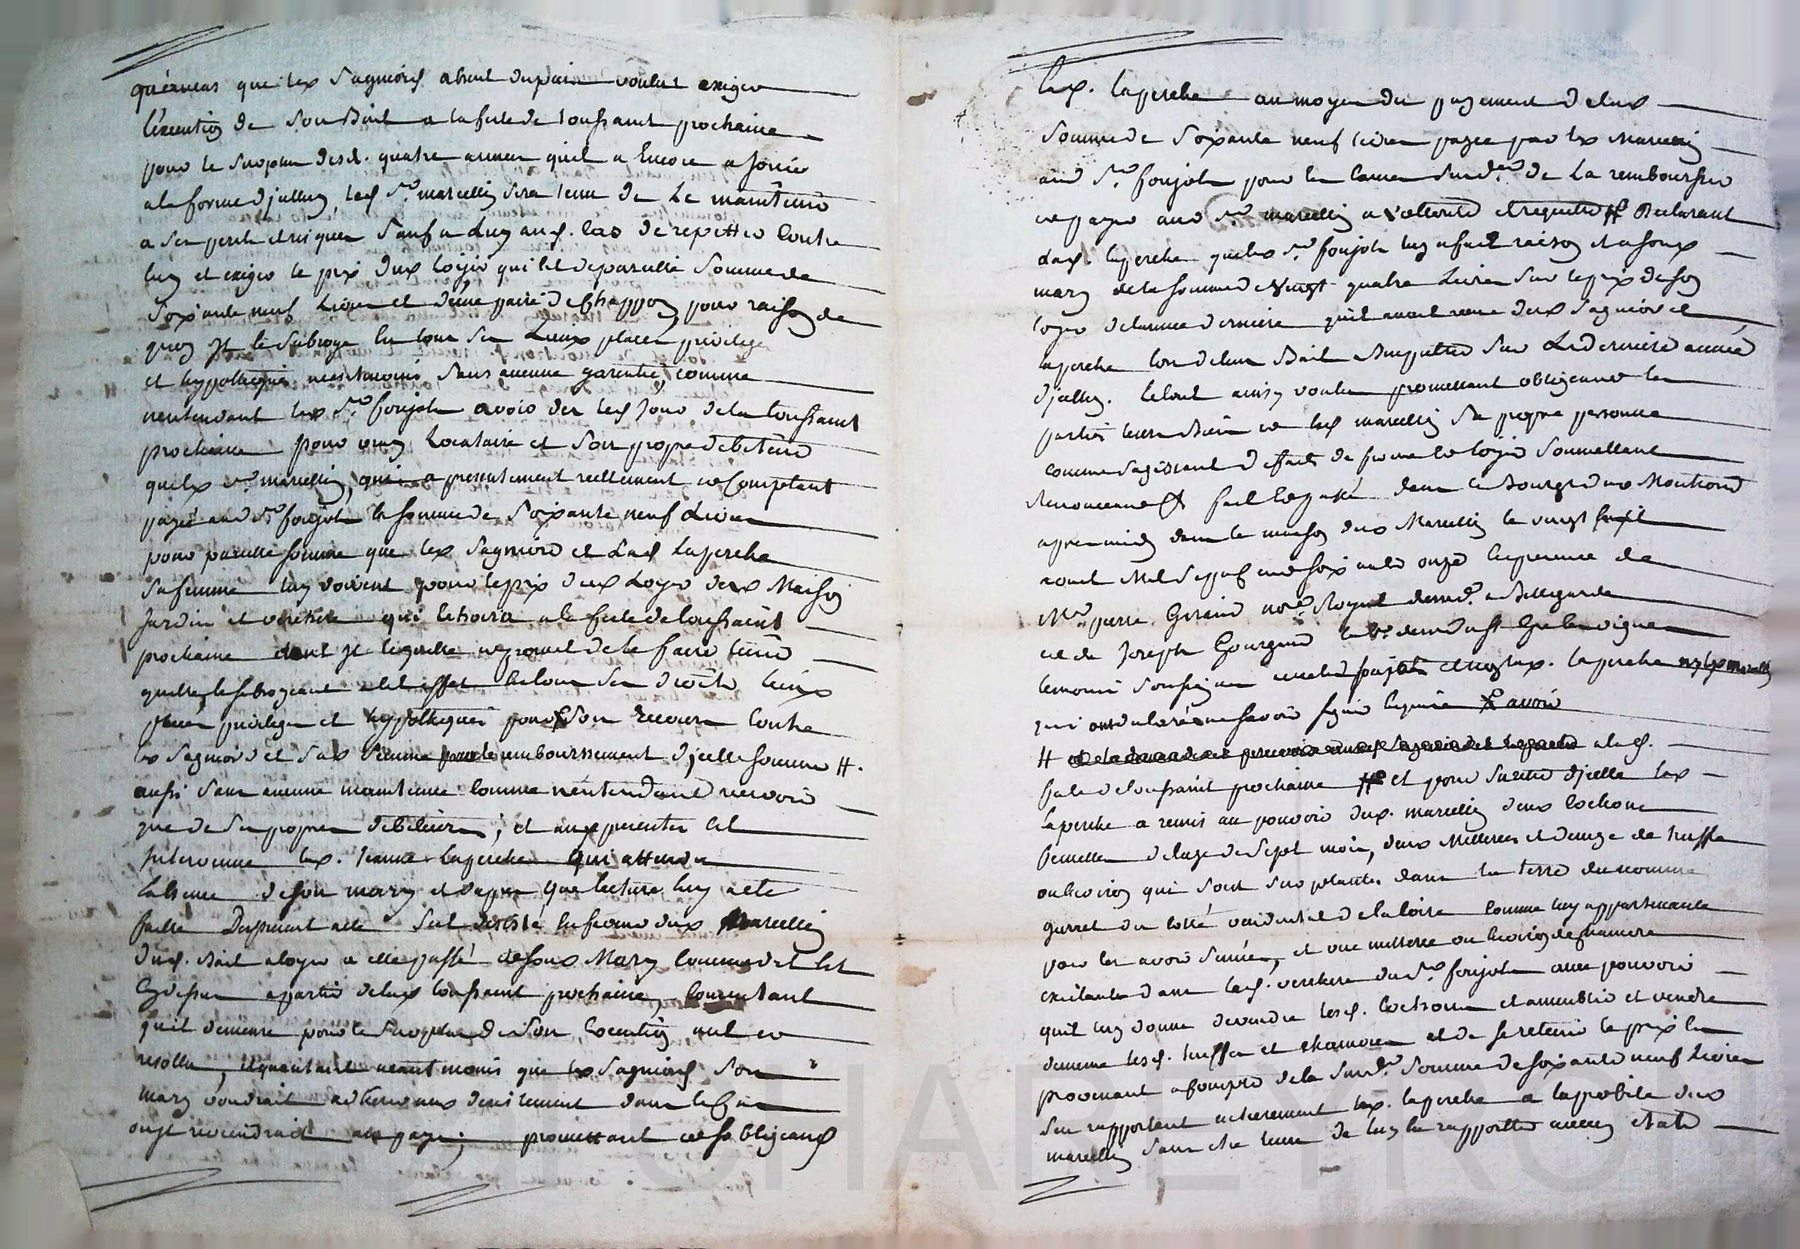 qu'en cas que led. Sagniord absent du pain voulut exiger
l'execution de son Bail a la fete de toussaint prochaine
pour le surplus desd. quatre années qu'il a Encore a jouir
a la forme d'jcelluy led. Sr. marcellin sera tenu de Le maintenir
a ses perils et risques sauf a Luy aud. Cas de repetter Contre
luy et exiger le prix dud. loyer qui est de pareille Somme de
Soixante neuf Livres et d'une paire de Chappon pour raison de
quoy jl le subroge en tous ses Lieux places privilege
et hypotheques neantmoins sans aucune garentie, comme
n'entendant led. Sr. foujols avoir des led. Jour de la toussaint
prochaine pour vray Locataire et son propre debiteur
que led. Sr. marcellin, qui a presentement reellement et Comptant
payé aud. Sr. foujols la somme de Soixante neuf Livres
pour pareille somme que led. Sagniord et Lad. Laperche
sa femme luy doivent pour le prix dud. Loyer desd. Maison
Jardin et verchere qui echoira a la fete de toussaint
prochaine dont jl le quitte et promet de le faire tenir
quitte, le subrogeant a cet effet en tous ses droits lieux
places privileges et hypotheques pour son recours Contre
led. Sagniord et sad. femme pour le remboursement d'jcelle somme #.
aussi sans aucune maintenue comme n'entendant recevoir
que de ses propres debiteurs; et aux presentes est
Intervenue lad. Jeanne Laperche qui attendu
l'absence de son mary et d'apres que lecture luy a eté
faitte Des presentes elle s'est desisté en faveur dud. Marcellin
Dud. Bail a loyer a elle passé et a son Mary Comme dit est
Cy dessus a partir de lad. toussaint prochaine, Consentant
qu'il demeure pour le surplus de son execution nul et
resolu, et garentant neantmoins que led. Sagniord son
mary voudroit acthever aux desistement dans le Cas
ou jl reviendroit au pays; promettant et s'obligeant
lad. Laperche au moyen du payement de lad.
Somme de Soixante neuf livres payée par led. Marcellin
aud. Sr. foujols pour les Causes susd. de La rembourser
et payer aud. Sr. marcellin a volonté et requette # Declarant
Lad. Laperche que led. Sr. foujols luy a fait raison et a son d.
mary de la somme de vingt quatre Livres sur le prix de son
loyer de l'année derniere qu'il avoit reçue dud. Sagniord et
Laperche lors de leur Bail Imputtée sur La derniere année
d'jcelluy. Le tout ainsy voulu promettant obligeant les
parties leurs Biens et led. marcellin Sa propre personne
comme s'agissant d'effait de ferme et loyer Soumettant
Renonceant &. fait et passé dans le Bourg dud. Montrond
apres midy dans la maison dud. Marcellin le vingt
aout Mil Sept cent soixante onze En presence de
Me. pierre Giraud nore. Royal demt. a Bellegarde
et de Joseph Gourgaud demt. aud.
temoins soussignés avec led. foujols et non lad. Laperche ny led. Marcellin
qui ont declaré ne savoir signer Enquis & avoir
# a lad.
fete de toussaint prochaine # et pour sureté d'jcelle lad.
Laperche a remis au pouvoir dud. marcellin deux Cochons
femelles de l'age de Sept mois, deux Metterées et demye de truffes
ou environ qui sont sur plante dans la terre du nommé
garret du coté occidental de la loire Comme luy appartenante
pour les avoir semée, et une metterée ou environ de Chanvre
existants dans lad. verchere du Sr. foujols avec pouvoir
qu'il luy donne de vendre lesd. Cochons et ameublir et vendre
de meme lesd. truffes et chanvre et de se retenir le prix en
provenant a Compte de la susd. Somme de soixante neuf Livres
s'en rapportant entierement lad. Laperche a la probité dud.
marcellin sans etre tenu de luy en rapporter aucun etat